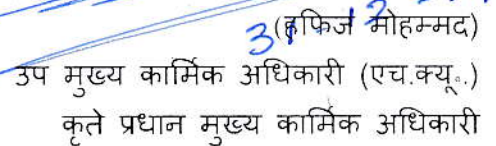 (हफिज मोहम्मद)
उप मुख्य कार्मिक अधिकारी (एच.क्यू..)
कृते प्रधान मुख्य कार्मिक अधिकारी